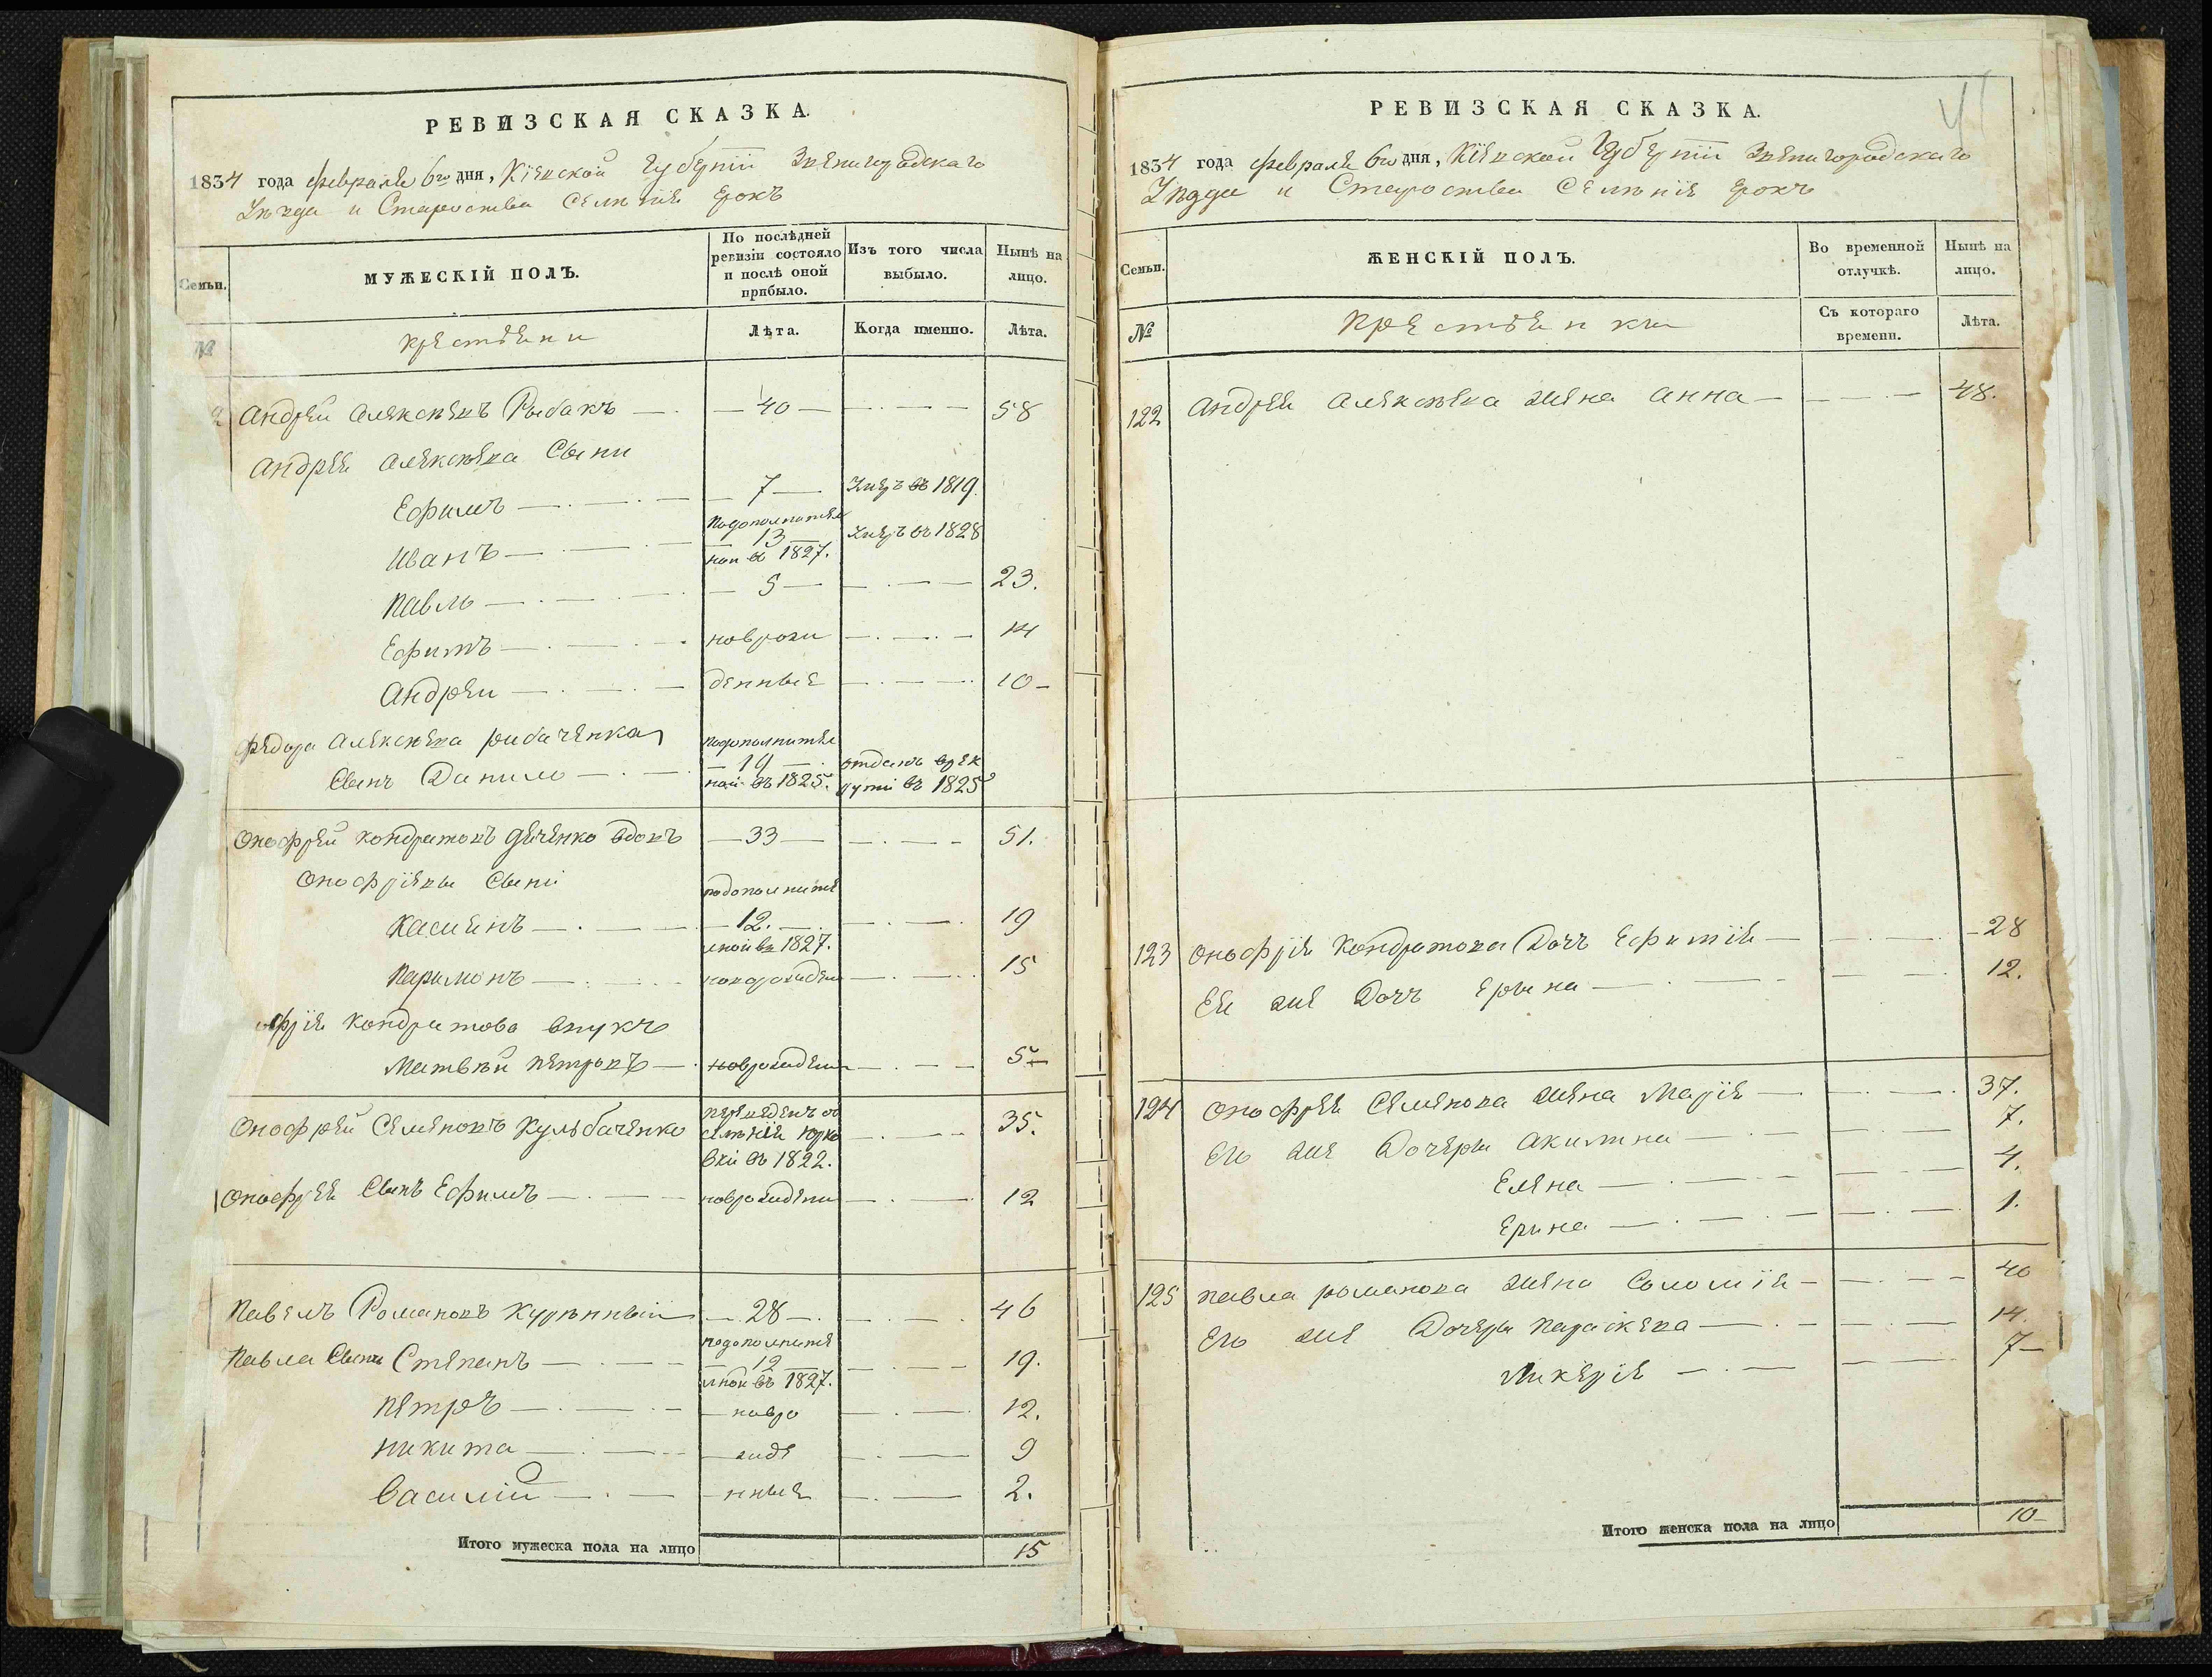 РЕВИЗСКАЯ СКАЗКА.
1834 года февраля 6го дня, Кіевской губерніи Звенигородскаго
Уезда и Староства Селенія Ерокъ
Семьи.
МУЖЕСКІЙ ПОЛЪ.
По послѣдней ревизіи состояло и послѣ оной прибыло.
Изъ того числа выбыло.
Нынѣ на лицо.
№
крестяни
Лѣта.
Когда именно.
Лѣта.
2 Андрей Алексѣевъ Рыбакъ — 40 — 58
Андрея Алексѣева Сыни
Ефимъ — 7 — Умеръ въ 1819.
Иванъ — подополнител 13 ной въ 1827. Умеръ въ 1828
Павлъ — 5 — 23.
Ефимъ — новрожи 14
Андреи — денные 10
Федора Алексѣева рибаченка
Сынъ Данило — подополнител 19 ной въ 1825. отданъ врек рути въ 1825
Онофрей Кондратовъ Дяченко вдовъ — 33 — 51.
Онофріевы Сыні
Касиянъ — подополните 12. лной въ 1827. 19
Паримонъ — новорожден 15
офрія Кондратова внукъ
Матвѣй Петровъ — новрожден 5
Онофрей Семеновъ Кульбаченко переведенъ съ селѣнія Юрко вки въ 1822. 35.
Онофрея Сынъ Ефимъ — новрожден 12
Павелъ Романовъ Курѣнный — 28 — 46
Павла Сыни Степанъ — подополните 12 лной въ 1827. 19.
Петръ — новро 12.
Никита — жде 9
Василій — нные 2.
Итого мужеска пола на лицо 15
РЕВИЗСКАЯ СКАЗКА.
1834 года февраля 6го дня, Кіевской Губерніи Звенигородскаго
Уезда и Староства Селенія Ерокъ
Семьи.
ЖЕНСКІЙ ПОЛЪ.
Во временной отлучкѣ.
Нынѣ на лицо.
№
Крестянки
Съ котораго времени.
Лѣта.
122 Андрея Алексѣева жена Анна — 48.
123 Онофрія Кондратова Дочъ Ефимія — 28
Ея же Дочъ Ерына — 12.
124 Онофрея Семенова жена Марія — 37.
Его же Дочеры Акилина — 7.
Елена — 4.
Ерина — 1.
125 Павла романова жена Соломія — 40
Его же Дочеры Параскева — 14.
Ликерія — 7
Итого женска пола на лицо 10